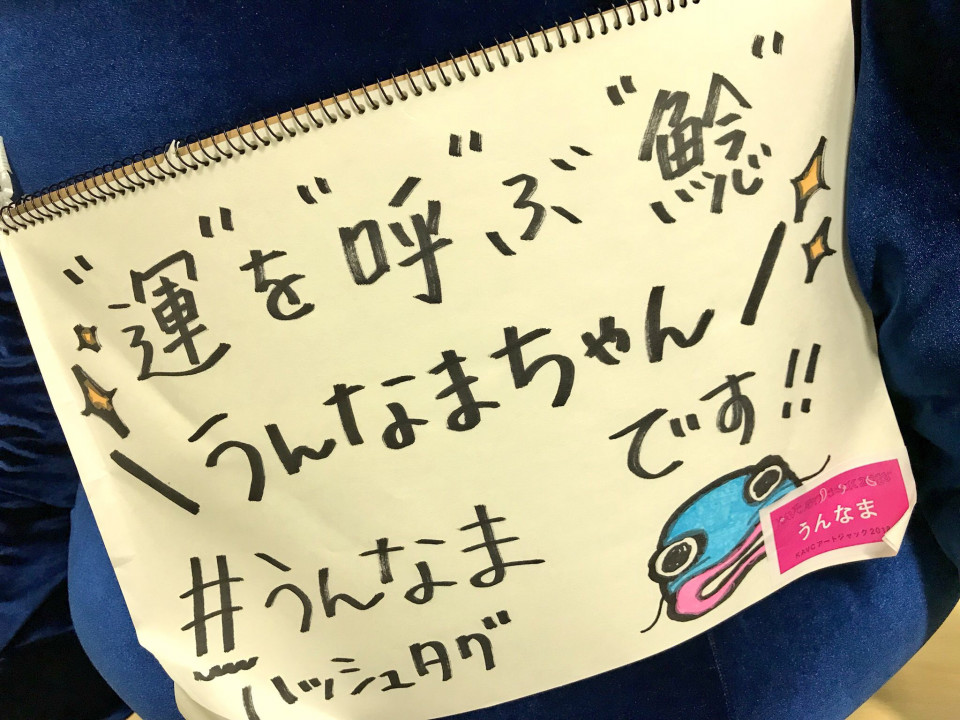 "運"を"呼"ぶ"鯰"
\うんなまちゃん/
です!!
#うんなま
ハッシュタグ
うんなま
KAVCアートジャック